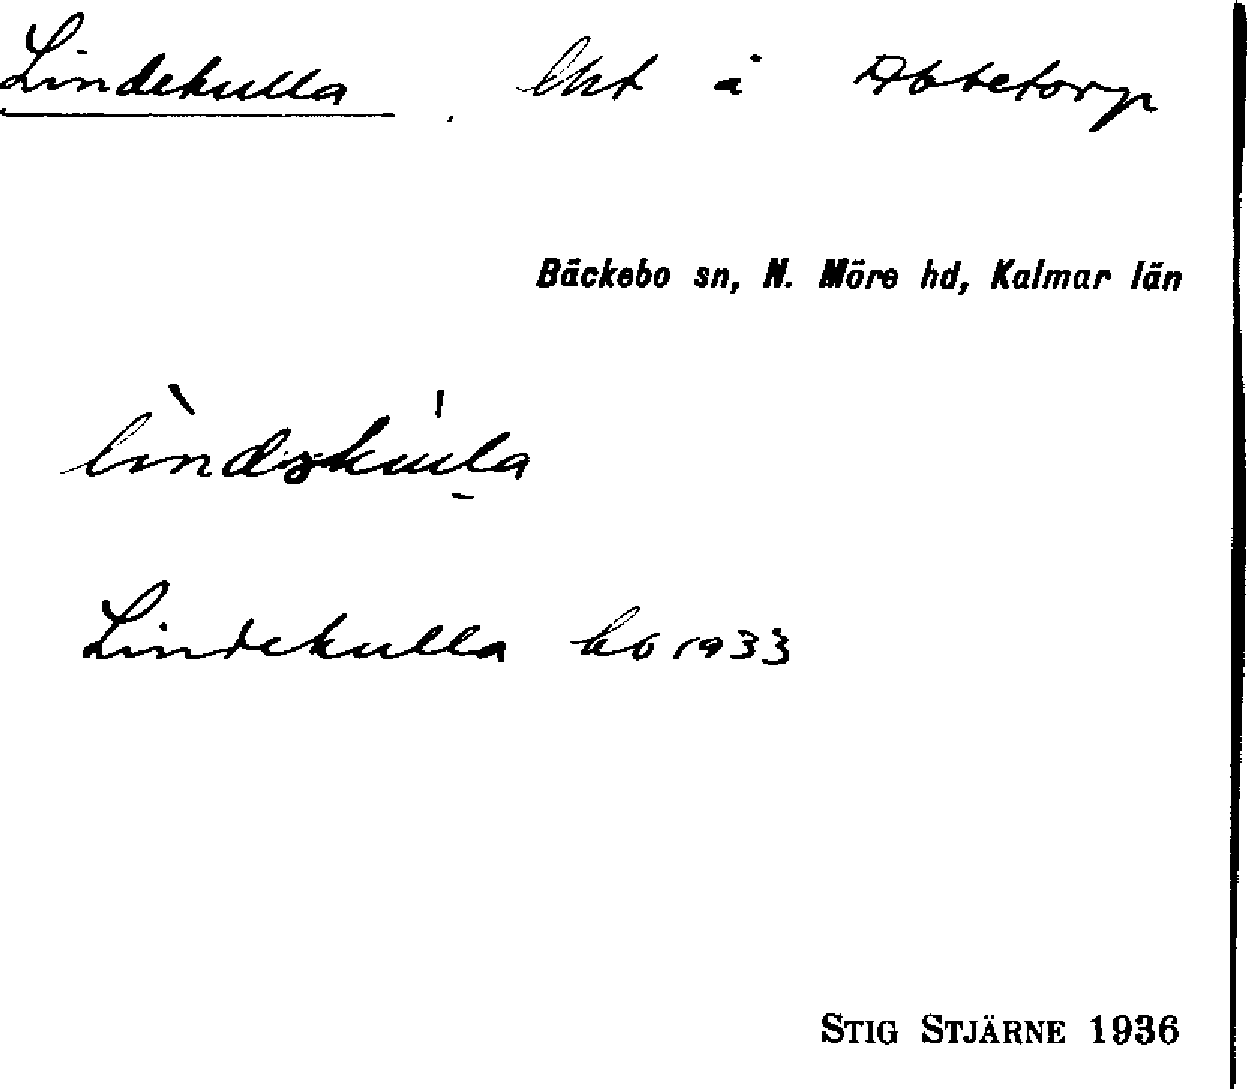 Lindekulla lht å Abbetorp
Bäckebo sn, N. Möre hd, Kalmar län
Lindekulla hb 1933
STIG STJÄRNE 1936